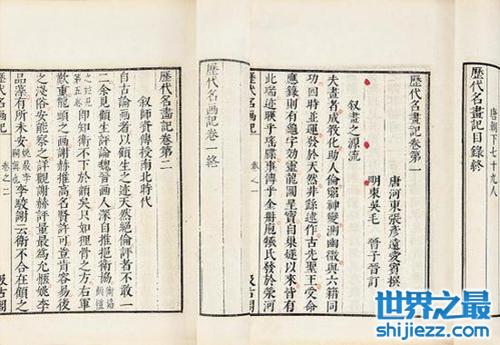 唐朝下七十九人
歷代名畫記目錄終
歷代名畫記卷第一
唐河東張彥遠愛賓撰
明東吳毛晉子晉訂
叙畫之源流
夫畫者成教化助人倫窮神變測幽微與六籍同
功四時並運發於天然非繇述作古先聖王受命
應籙則有龜字効靈龍圖呈寶自巢燧以來皆有
此瑞迹暎乎瑤牒事傳乎金冊庖犧氏發於滎河
卷之一
歷代名画記卷一終
歷代名畫記卷第二
叙師資傳授南北時代
自古論画者以顧生之迹天然絕倫評者不敢一
二余見顧生評論魏晉画人深自推挹衛協
第五卷即知衛不下於顧矣只如狸骨之方右軍
歎重龍頭之画謝赫推高名賢許可豈肯容易後
之淺俗安能察之詳觀謝赫評量最為允愜姚李
品藻有所未安李駿謝云衛不合在顧之
卷之二
汲古閣
世界之最
shijiezz.com